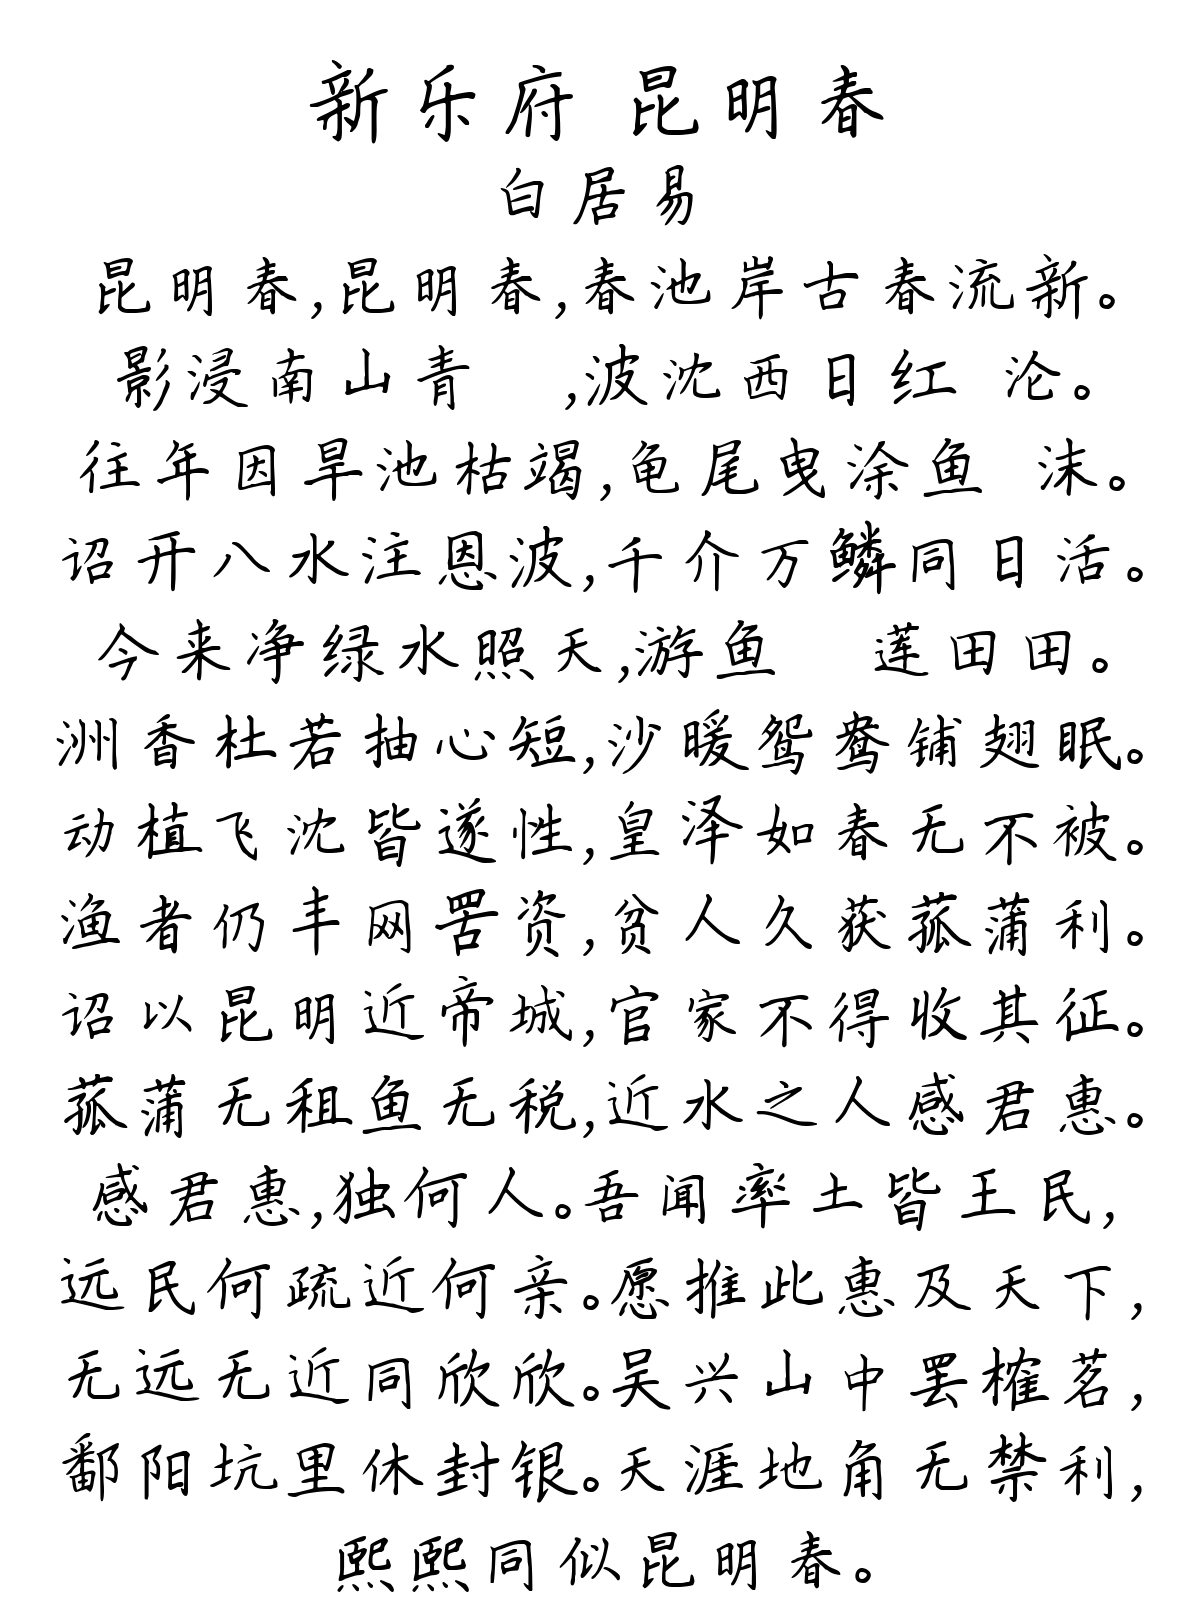 新乐府 昆明春
白居易
昆明春,昆明春,春池岸古春流新。
影浸南山青 ,波沈西日红 沦。
往年因旱池枯竭,龟尾曳涂鱼 沫。
诏开八水注恩波,千介万鳞同日活。
今来净绿水照天,游鱼 莲田田。
洲香杜若抽心短,沙暖鸳鸯铺翅眠。
动植飞沈皆遂性,皇泽如春无不被。
渔者仍丰网罟资,贫人久获菰蒲利。
诏以昆明近帝城,官家不得收其征。
菰蒲无租鱼无税,近水之人感君惠。
感君惠,独何人。吾闻率土皆王民,
远民何疏近何亲。愿推此惠及天下,
无远无近同欣欣。吴兴山中罢榷茗,
鄱阳坑里休封银。天涯地角无禁利,
熙熙同似昆明春。